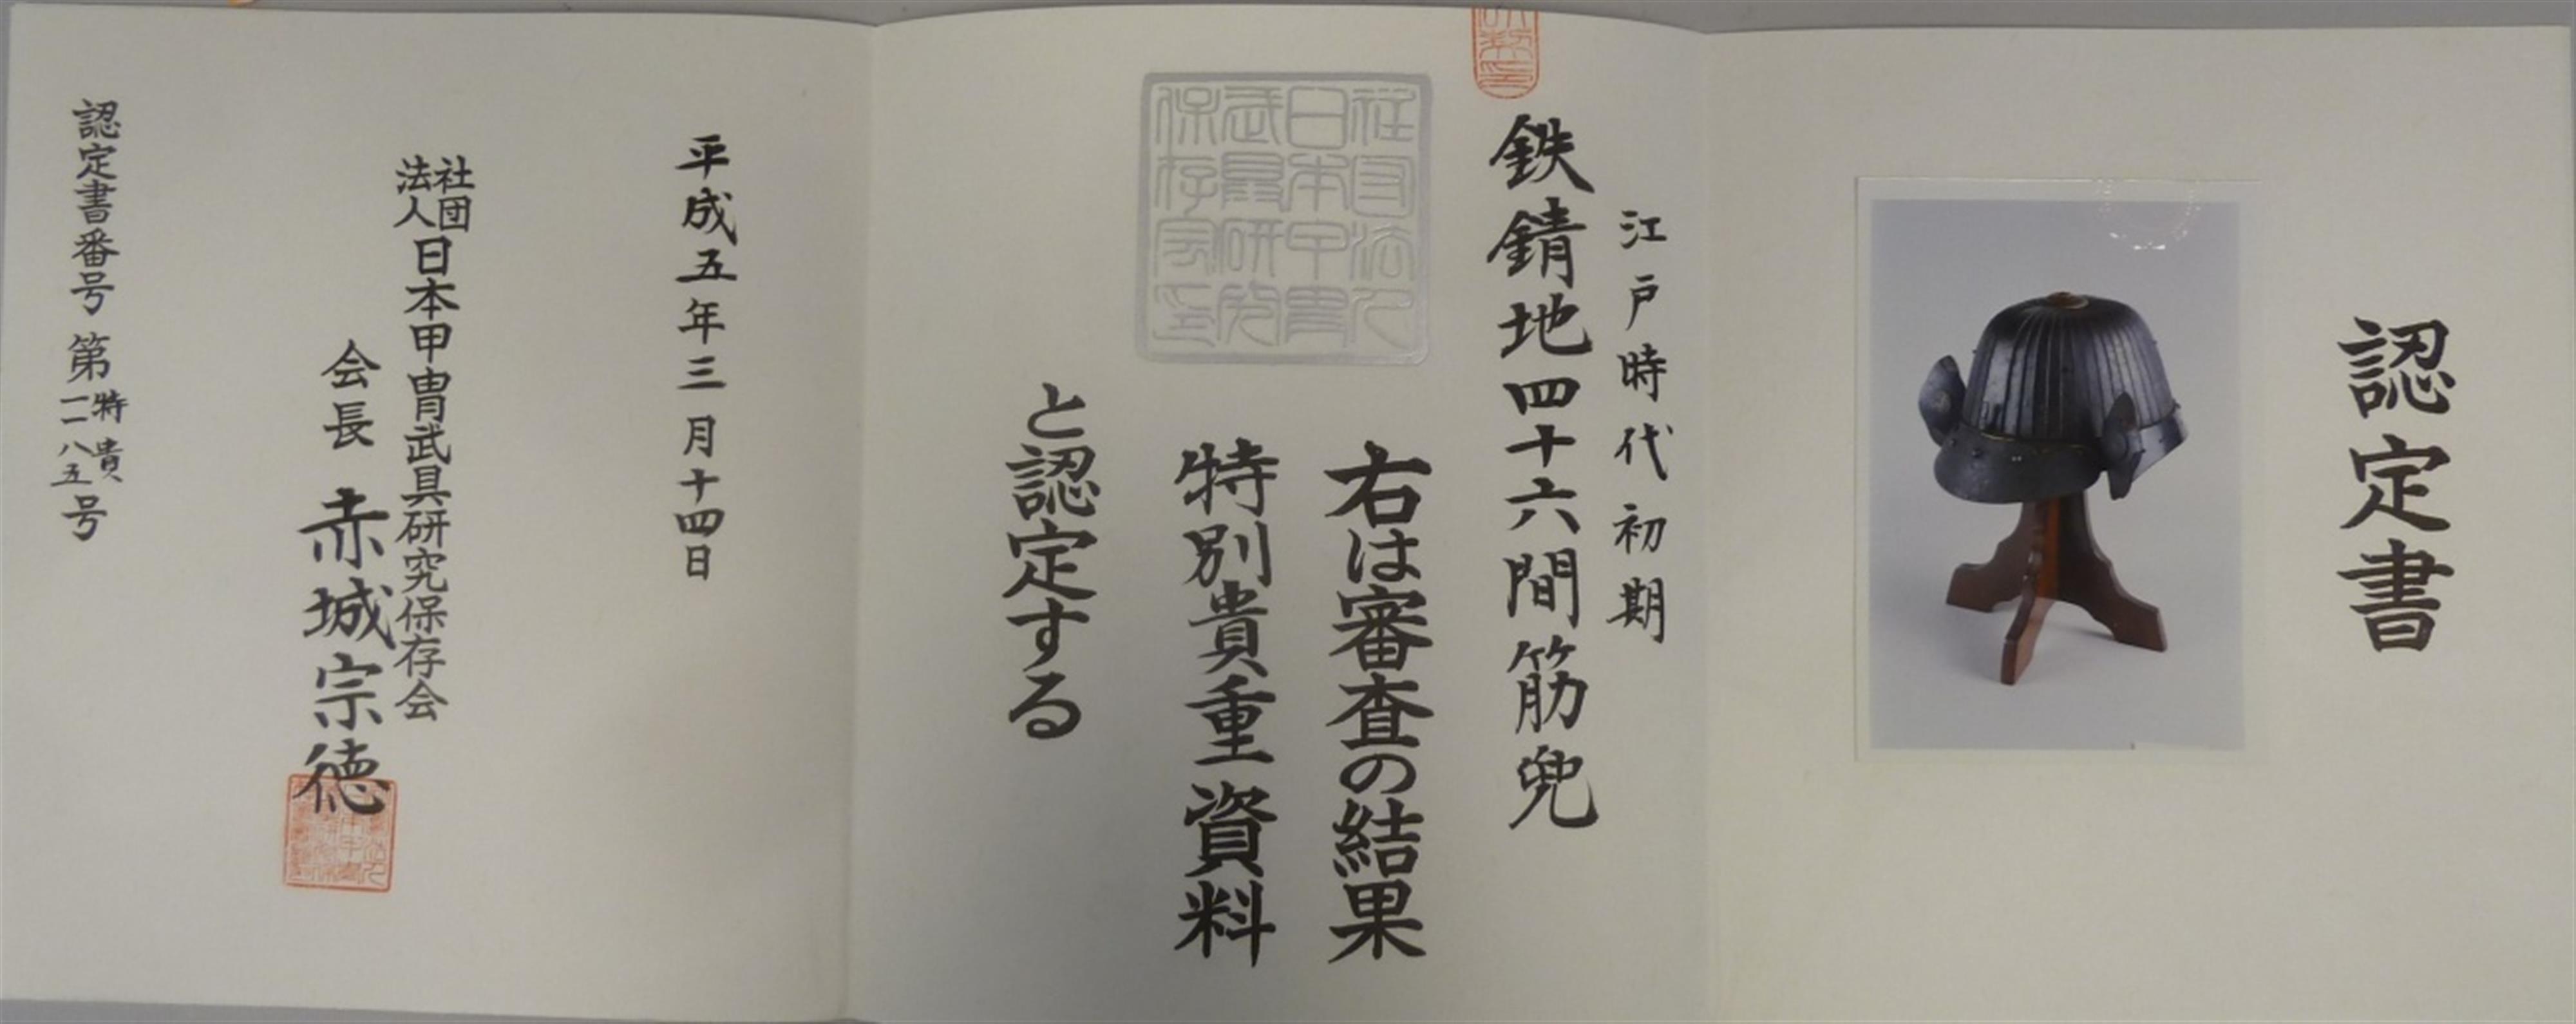 認定書
江戸時代初期
鉄錆地四十六間筋兜
右は審査の結果
特別貴重資料
と認定する
社団法人日本甲冑武具研究保存会印
平成五年三月十四日
社団法人日本甲冑武具研究保存会
会長 赤城宗徳
認定書番号 第特貴一一八五号